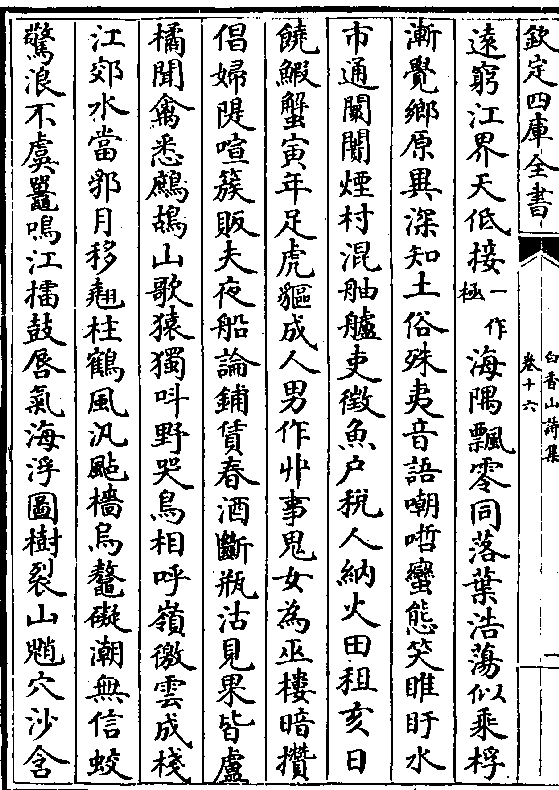 欽定四庫全書
白香山詩集
卷十六
一
遠窮江界天低接一作極海隅飄零同落葉浩蕩似乘桴
漸覺鄉原異深知土俗殊夷音語嘲哳蠻態笑睢盱水
市通闤闠煙村混舳艫吏徵魚户税人納火田租亥日
饒鰕蟹寅年足虎貙成人男作丱事鬼女為巫樓暗攢
倡婦隄喧簇販夫夜船論鋪賃春酒斷瓶沽見果皆盧
橘聞禽悉鷓鴣山歌猿獨呌野哭鳥相呼嶺徼雲成棧
江郊水當郛月移翹柱鶴風汎颭檣烏鼇礙潮無信蛟
驚浪不虞鼉鳴江擂鼓蜃氣海浮圖樹裂山魈穴沙含